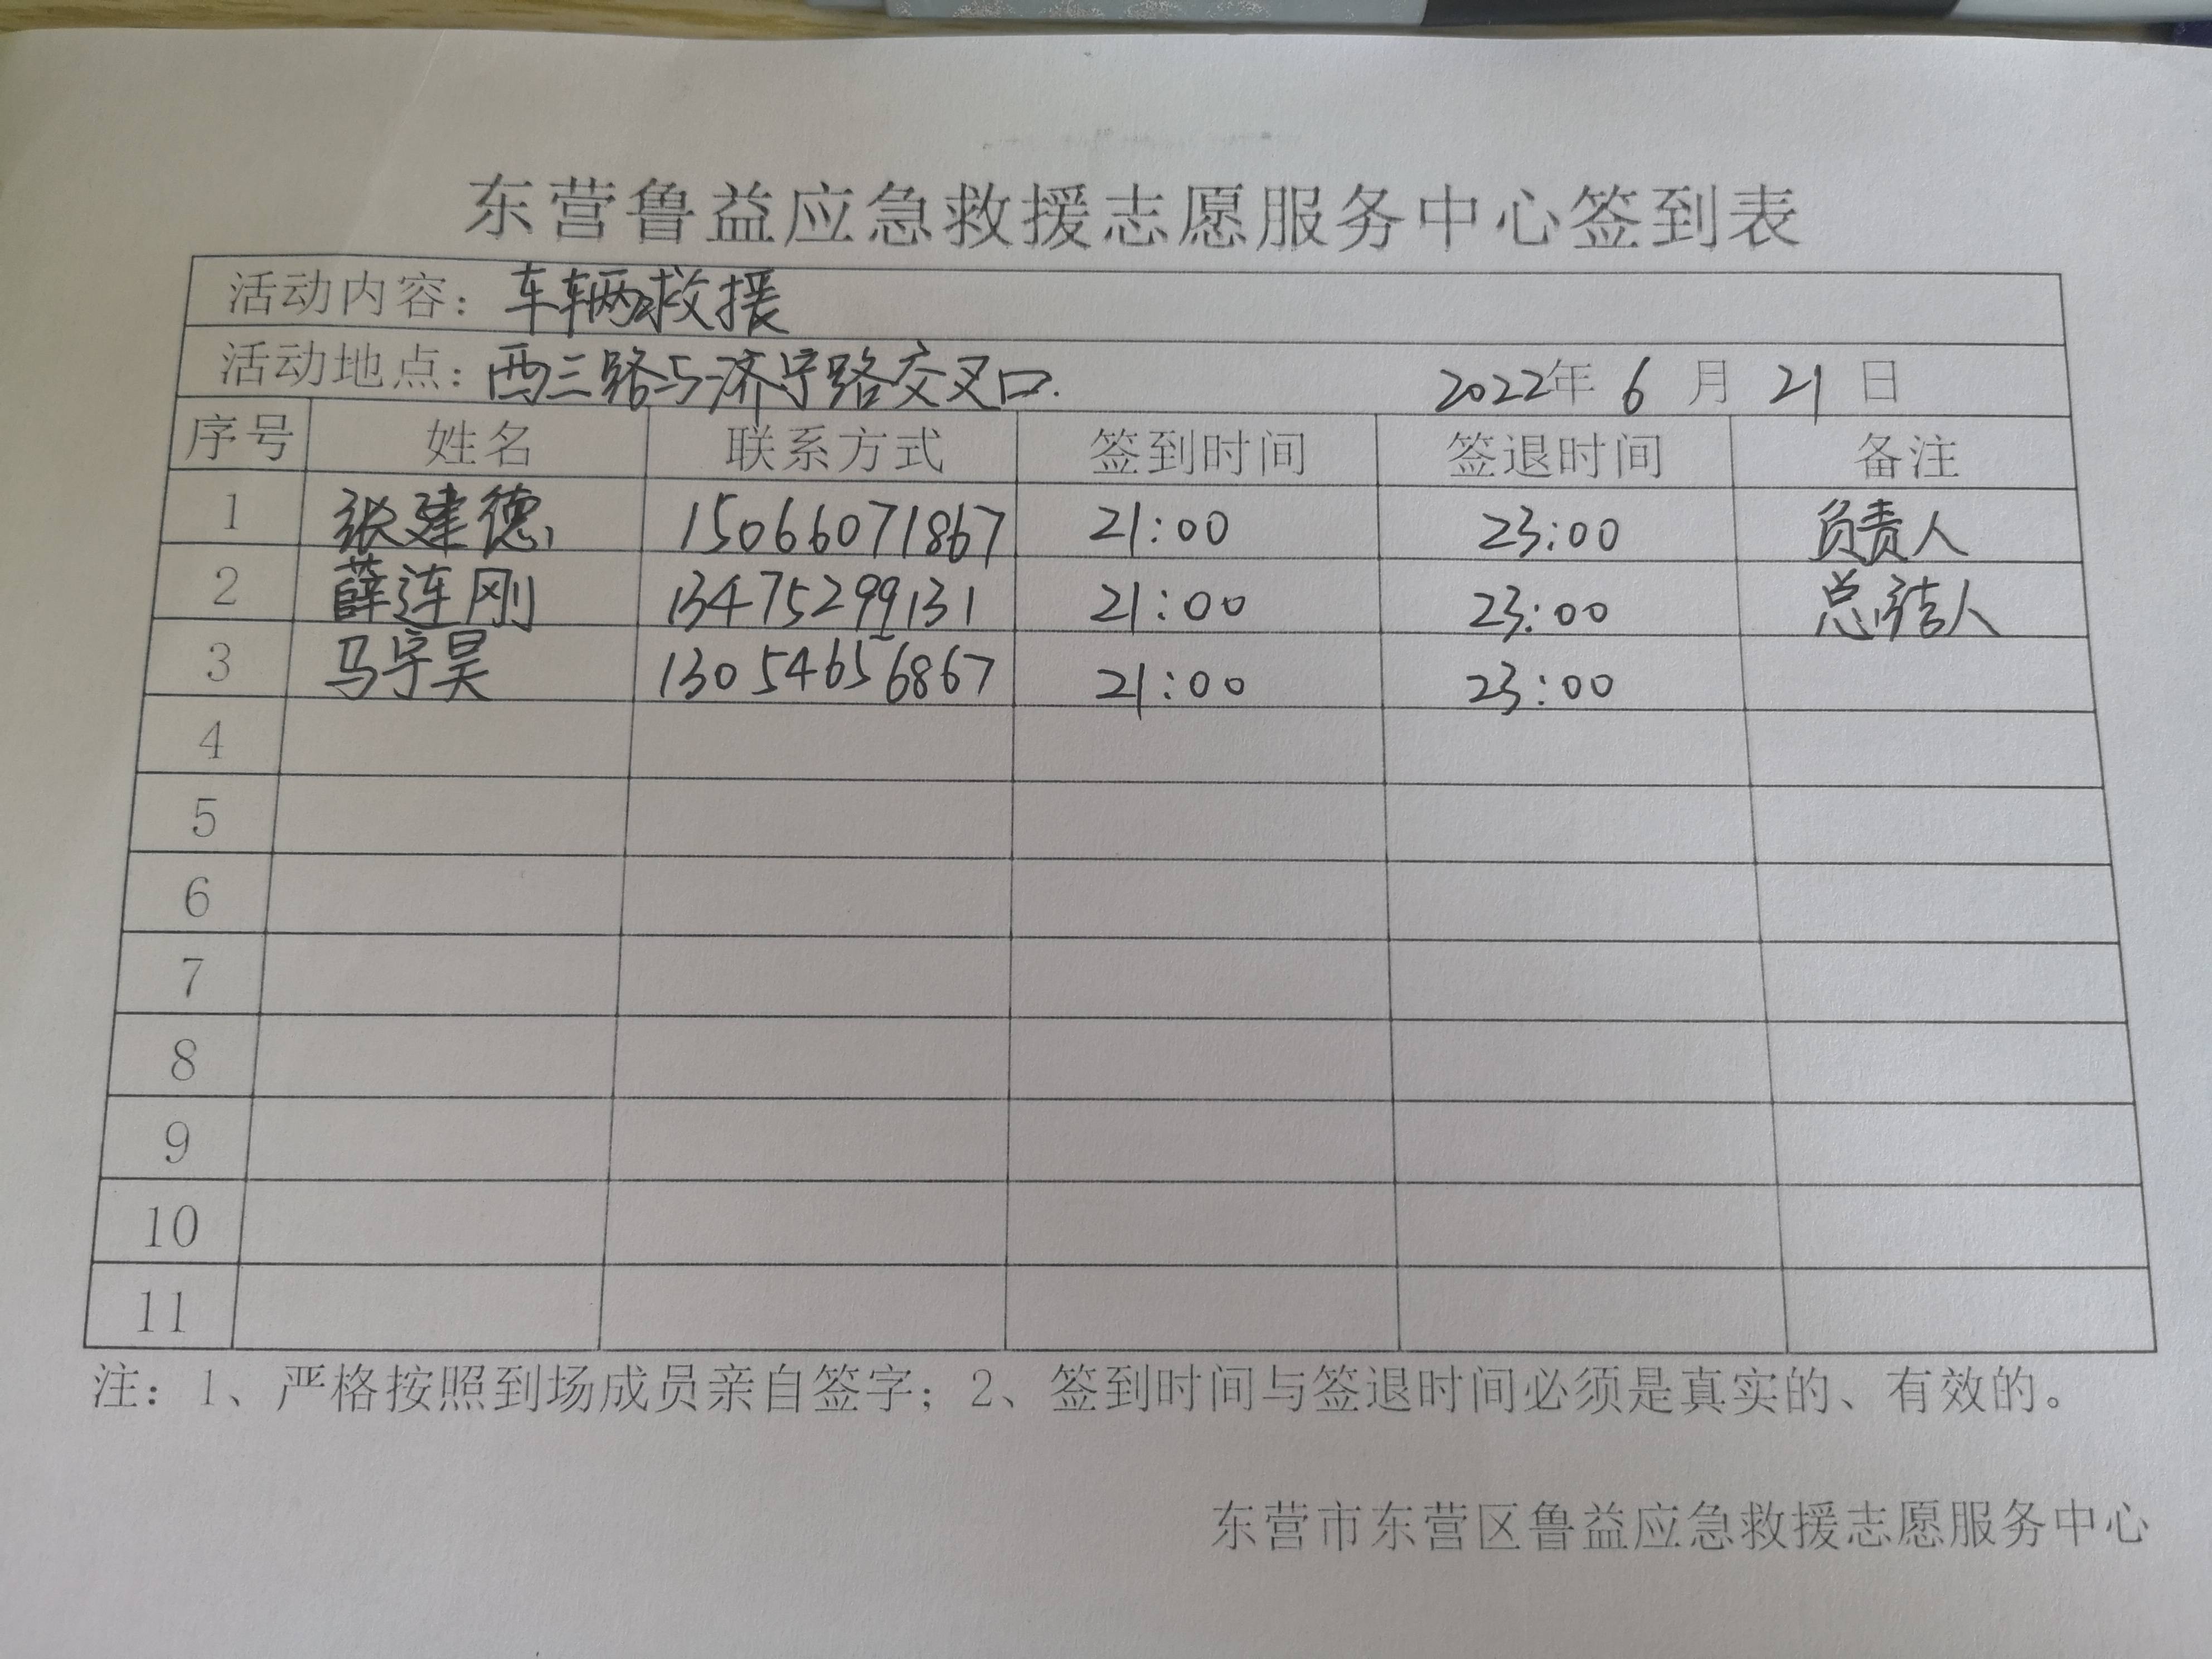 东营鲁益应急救援志愿服务中心签到表
活动内容：车辆救援
活动地点：西三路与济宁路交叉口. 2022年 6 月 21 日
序号 姓名 联系方式 签到时间 签退时间 备注
1 张建德 15066071867 21:00 23:00 负责人
2 薛连刚 13475299131 21:00 23:00 总结人
3 马宇昊 13054656867 21:00 23:00
4
5
6
7
8
9
10
11
注：1、严格按照到场成员亲自签字；2、签到时间与签退时间必须是真实的、有效的。
东营市东营区鲁益应急救援志愿服务中心